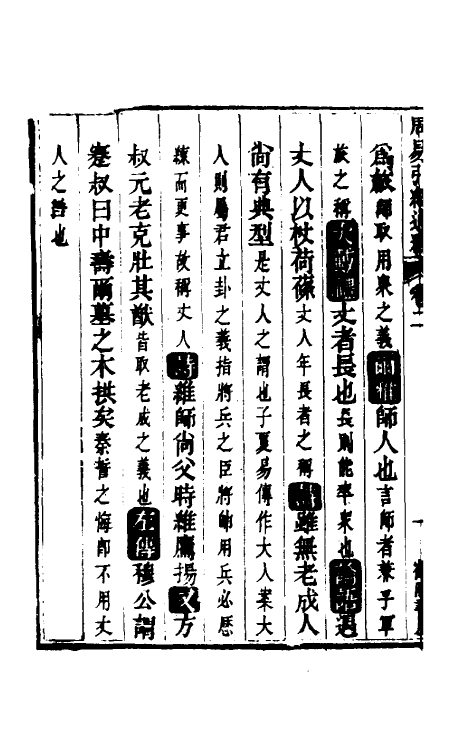 周易引經通釋 卷二
為敵師取用衆之義爾雅師人也言師者兼予軍
旅之稱大戴禮丈者長也長則能率衆也論語遇
丈人以杖荷蓧丈人年長者之稱詩雖無老成人
尚有典型是丈人之謂也子夏易傳作大人案大
人則屬君立卦之義指將兵之臣將帥用兵必歷
練而更事故稱丈人詩維師尚父時維鷹揚又方
叔元老克壯其猷皆取老成之義也左傳穆公謂
蹇叔曰中壽爾墓之木拱矣秦誓之悔卽不用丈
人之語也